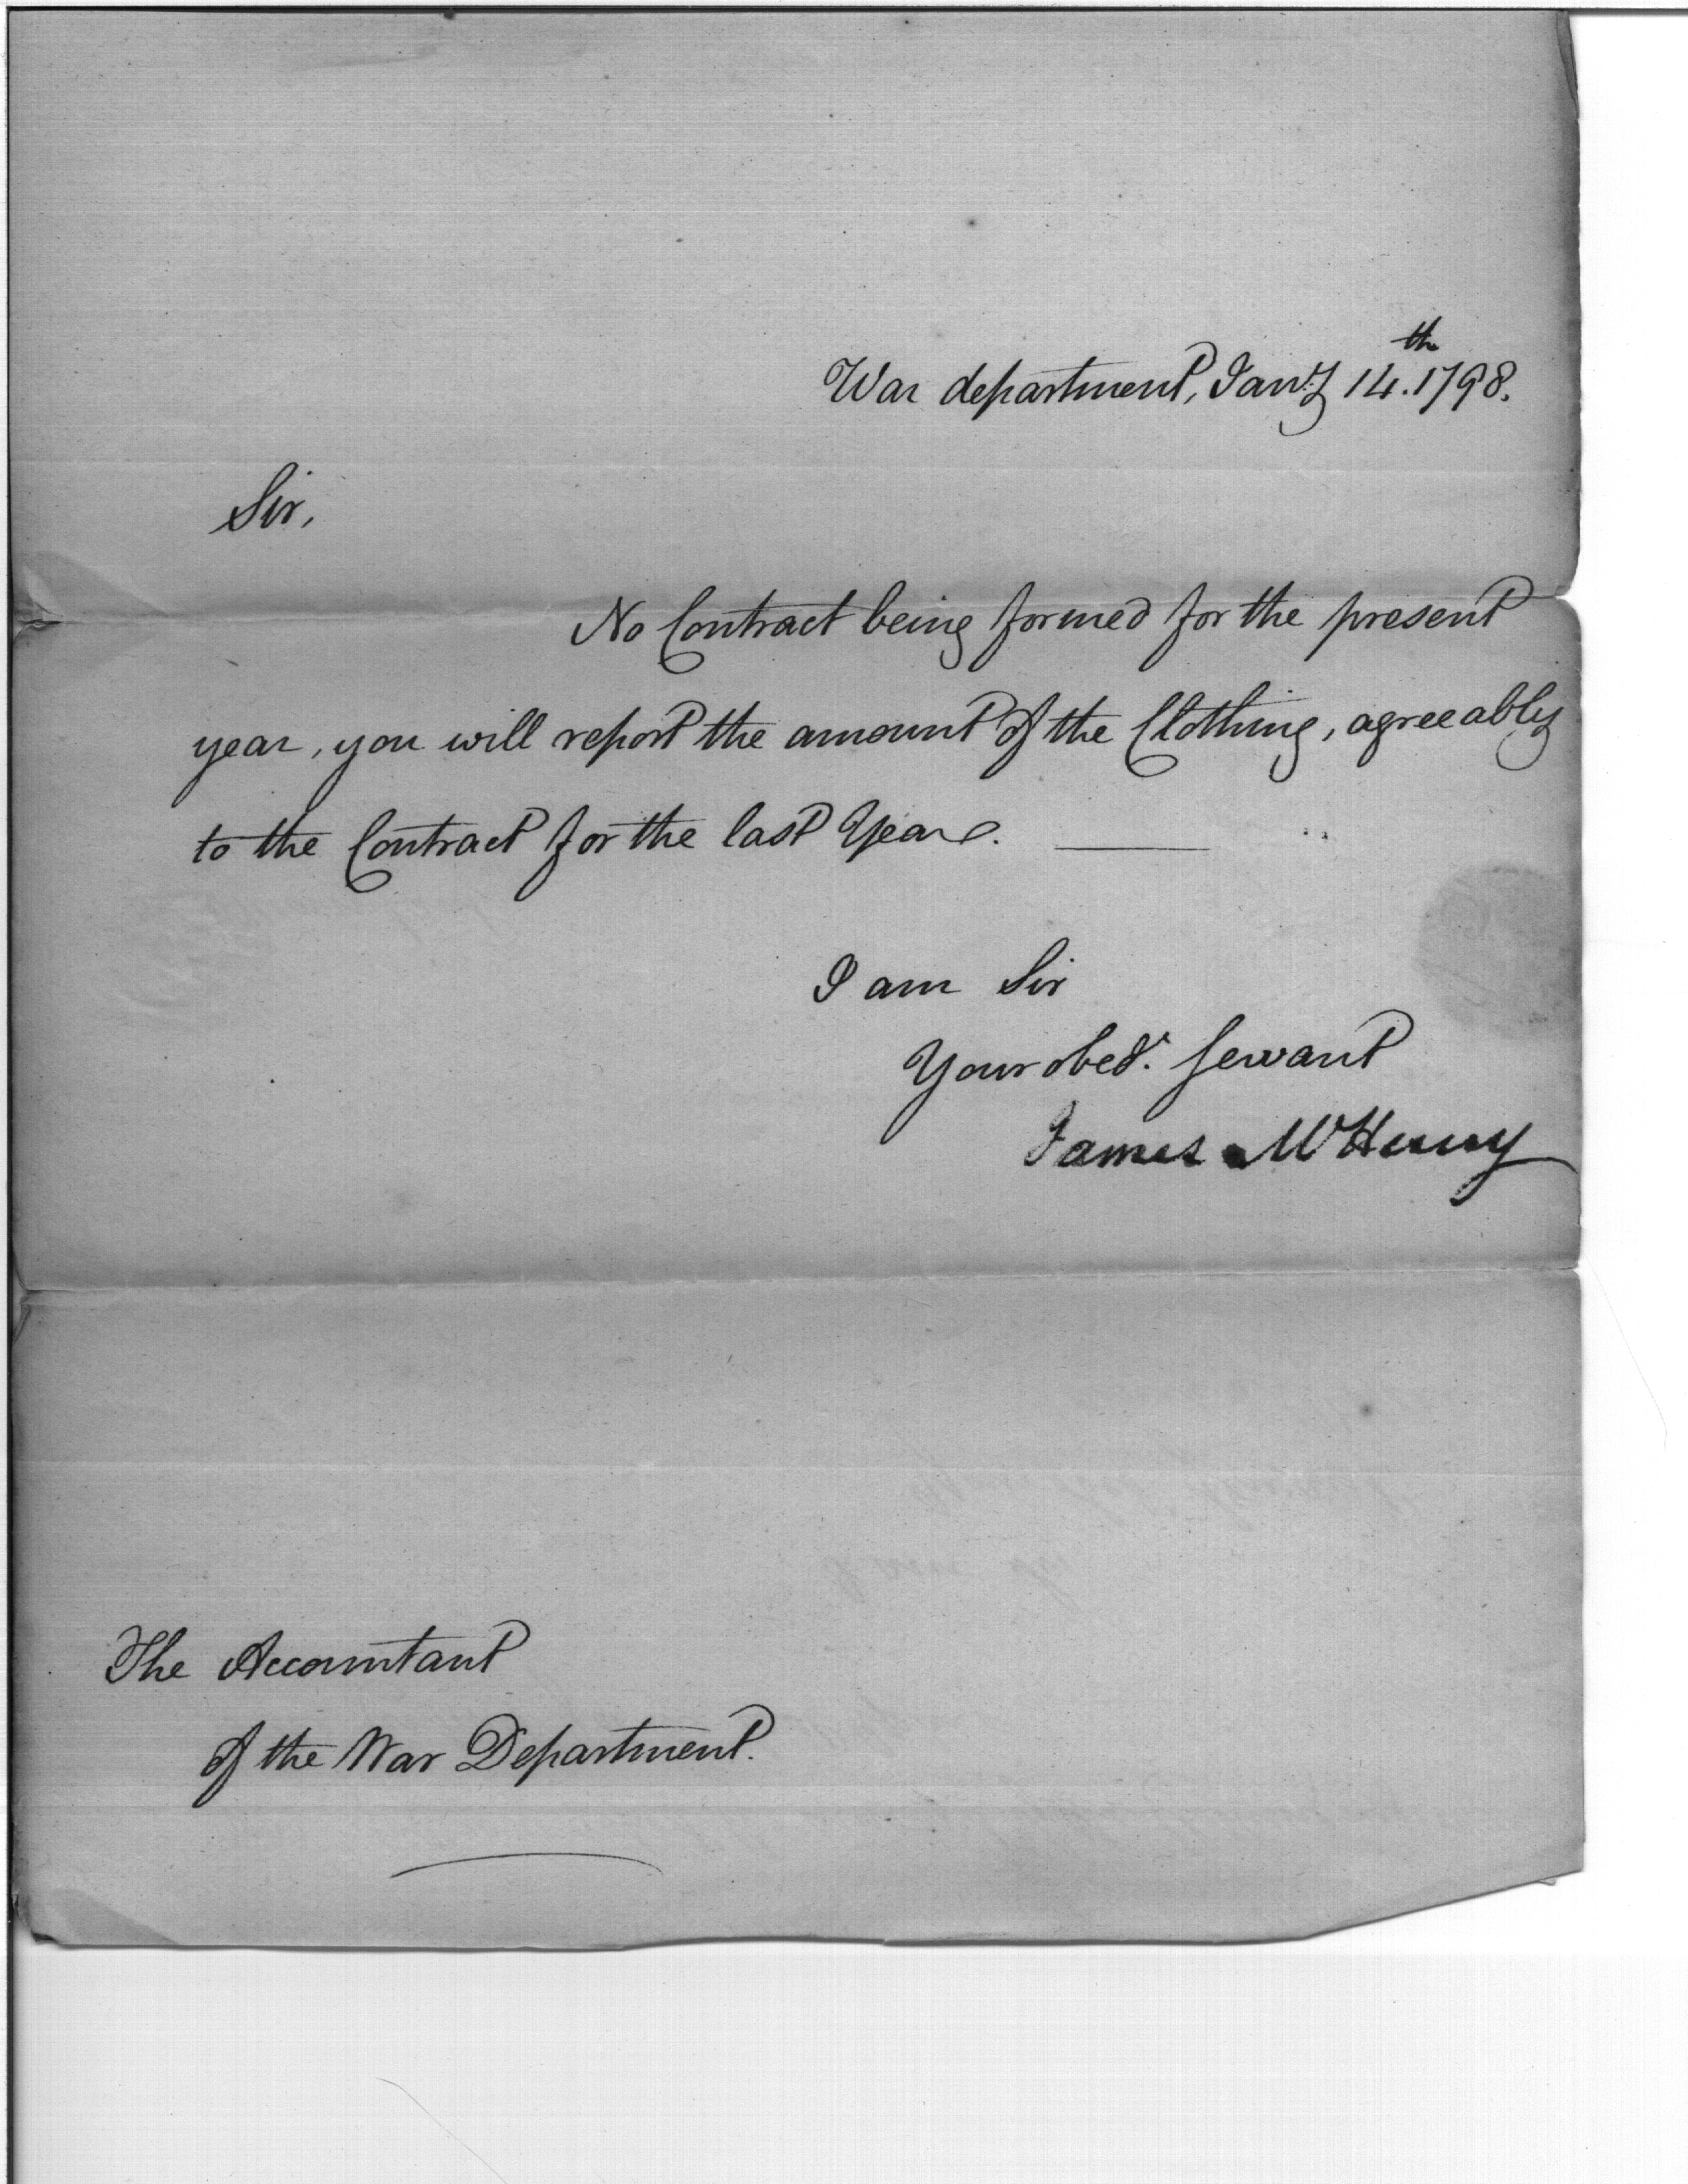 War department, Jan.y 14.th 1798.
Sir,
No Contract being formed for the present
year, you will report the amount of the Clothing, agreeably
to the Contract for the last Year.
I am Sir
Your obed.t Servant
James McHenry
The Accountant
of the War Department.